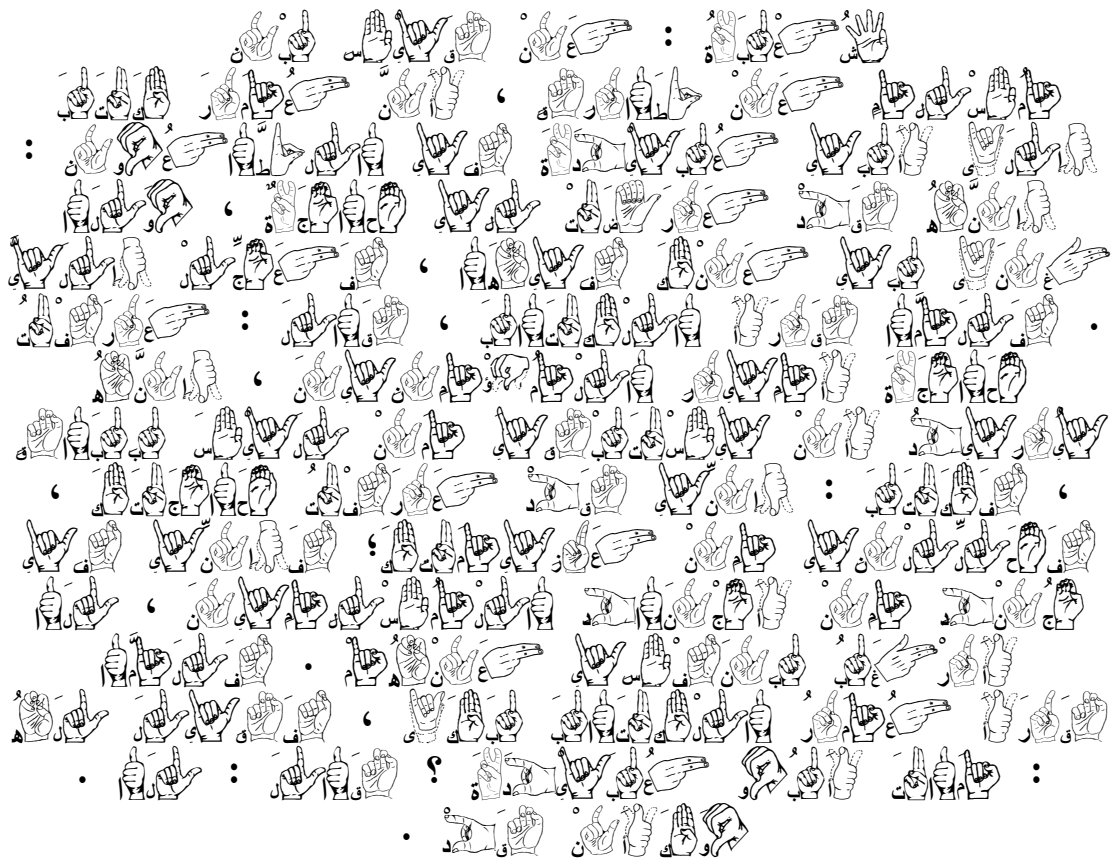 شُعْبَةُ : عَنْ قَيْسِ بْنِ
مُسْلِمٍ عَنْ طَارِقٍ ، أَنَّ عُمَرَ كَتَبَ
إِلَى أَبِي عُبَيْدَةَ فِي الطَّاعُونِ :
إِنَّهُ قَدْ عَرَضَتْ لِي حَاجَةٌ ، وَلَا
غِنَى بِي عَنْكَ فِيهَا ، فَعَجِّلْ إِلَيَّ
. فَلَمَّا قَرَأَ الكِتَابَ ، قَالَ : عَرَفْتُ
حَاجَةَ أَمِيرِ المُؤْمِنِينَ ، إِنَّهُ
يُرِيدُ أَنْ يَسْتَبْقِيَ مَنْ لَيْسَ بِبَاقٍ
، فَكَتَبَ : إِنِّي قَدْ عَرَفْتُ حَاجَتَكَ ،
فَحَلِّلْنِي مِنْ عَزِيمَتِكَ ؛ فَإِنِّي فِي
جُنْدٍ مِنْ أَجْنَادِ المُسْلِمِينَ ، لَا
أَرْغَبُ بِنَفْسِي عَنْهُمْ . فَلَمَّا
قَرَأَ عُمَرُ الكِتَابَ بَكَى ، فَقِيلَ لَهُ
: مَاتَ أَبُو عُبَيْدَةَ ؟ قَالَ : لَا .
وَكَأَنْ قَدْ .